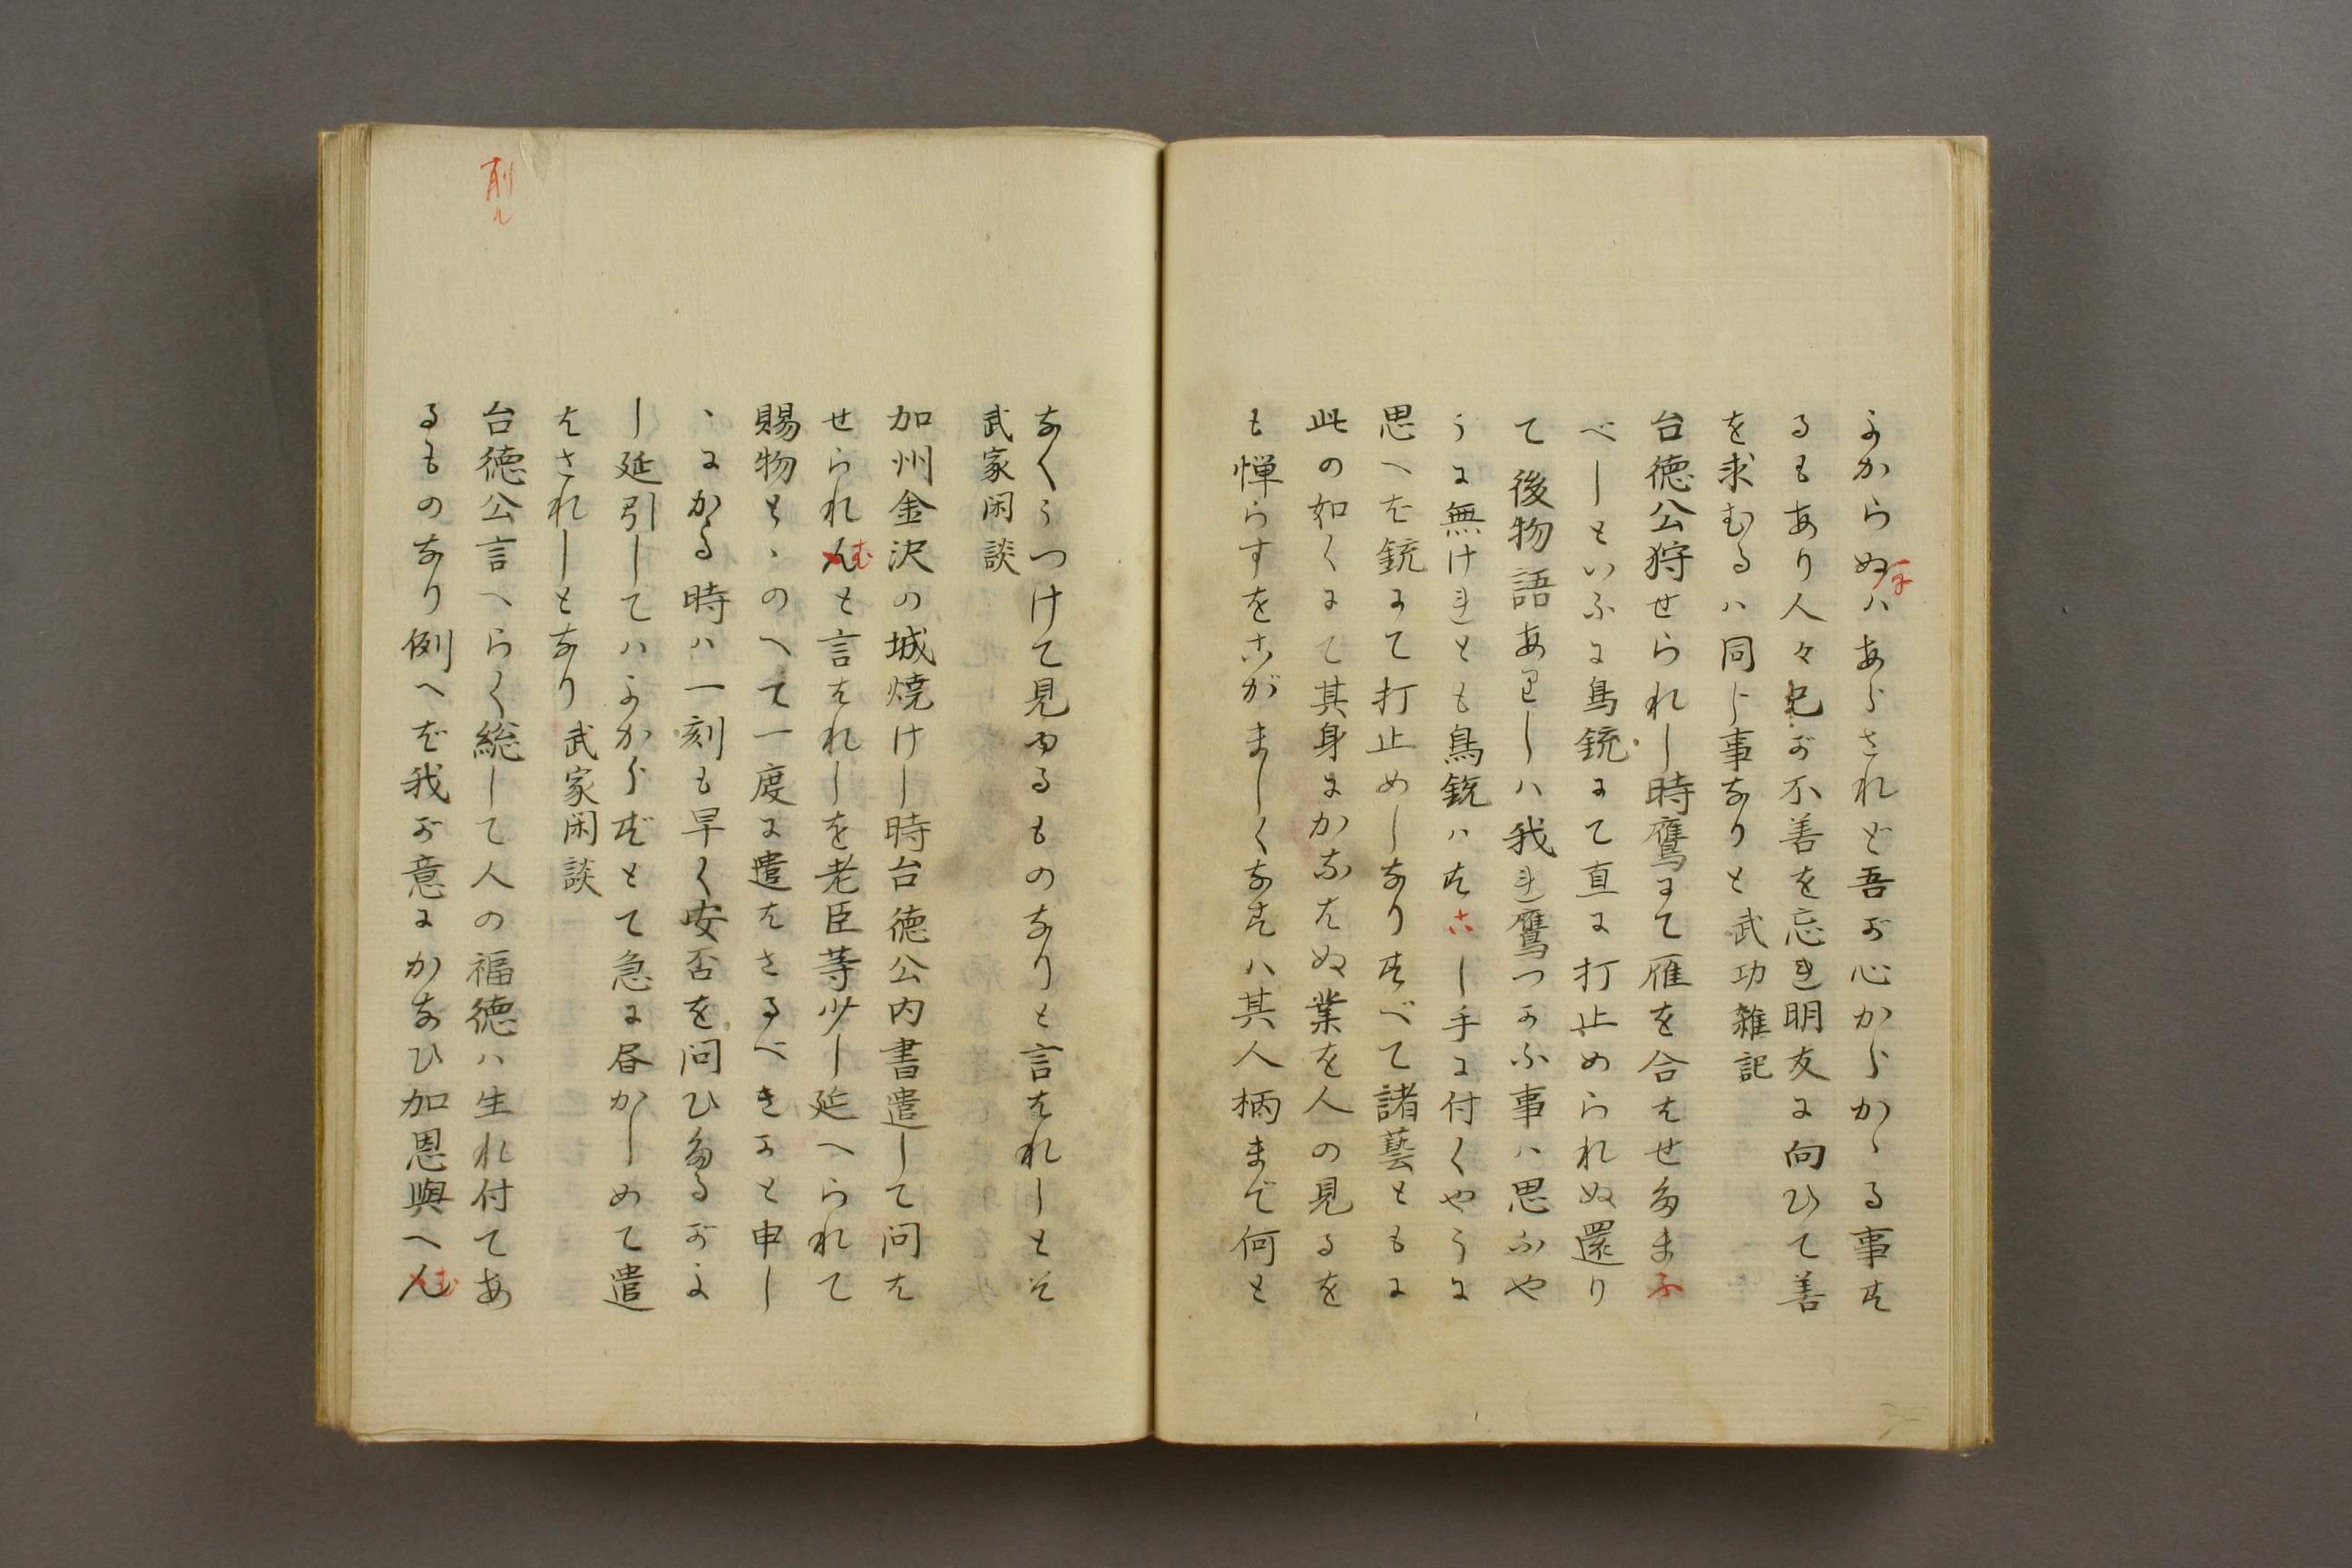 よからぬハあらされど吾が心からかゝる事す
るもあり人々己が不善を忘き明友に向ひて善
を求むるハ同じ事なりと 武功雑記
台徳公狩せられし時鷹にて雁を合はせたまふ
べしといふに鳥銃にて直に打止められぬ還り
て後物語ありしハ我き鷹つかふ事ハ思ふや
うに無けれとも鳥銃ハすこし手に付くやうに
思へは銃にて打止めしなりすべて諸藝ともに
此の如くにて其身にかなはぬ業を人の見るを
も憚らすをこがましくなすハ其人柄まで何と
なくうつけて見ゆるものなりと言はれしとそ
武家閑談
加州金沢の城焼けし時台徳公内書遣して問は
せられむと言はれしを老臣等少し延へられて
賜物とゝのへて一度に遣はさるべきかと申し
ゝにかる時ハ一刻も早く安否を問ひたるがよ
し延引してハよからずとて急に昼かしめて遣
はされしとなり 武家閑談
台徳公言へらく総して人の福徳ハ生れ付てあ
るものなり例へば我が意にかなひ加恩與へむ
削ル